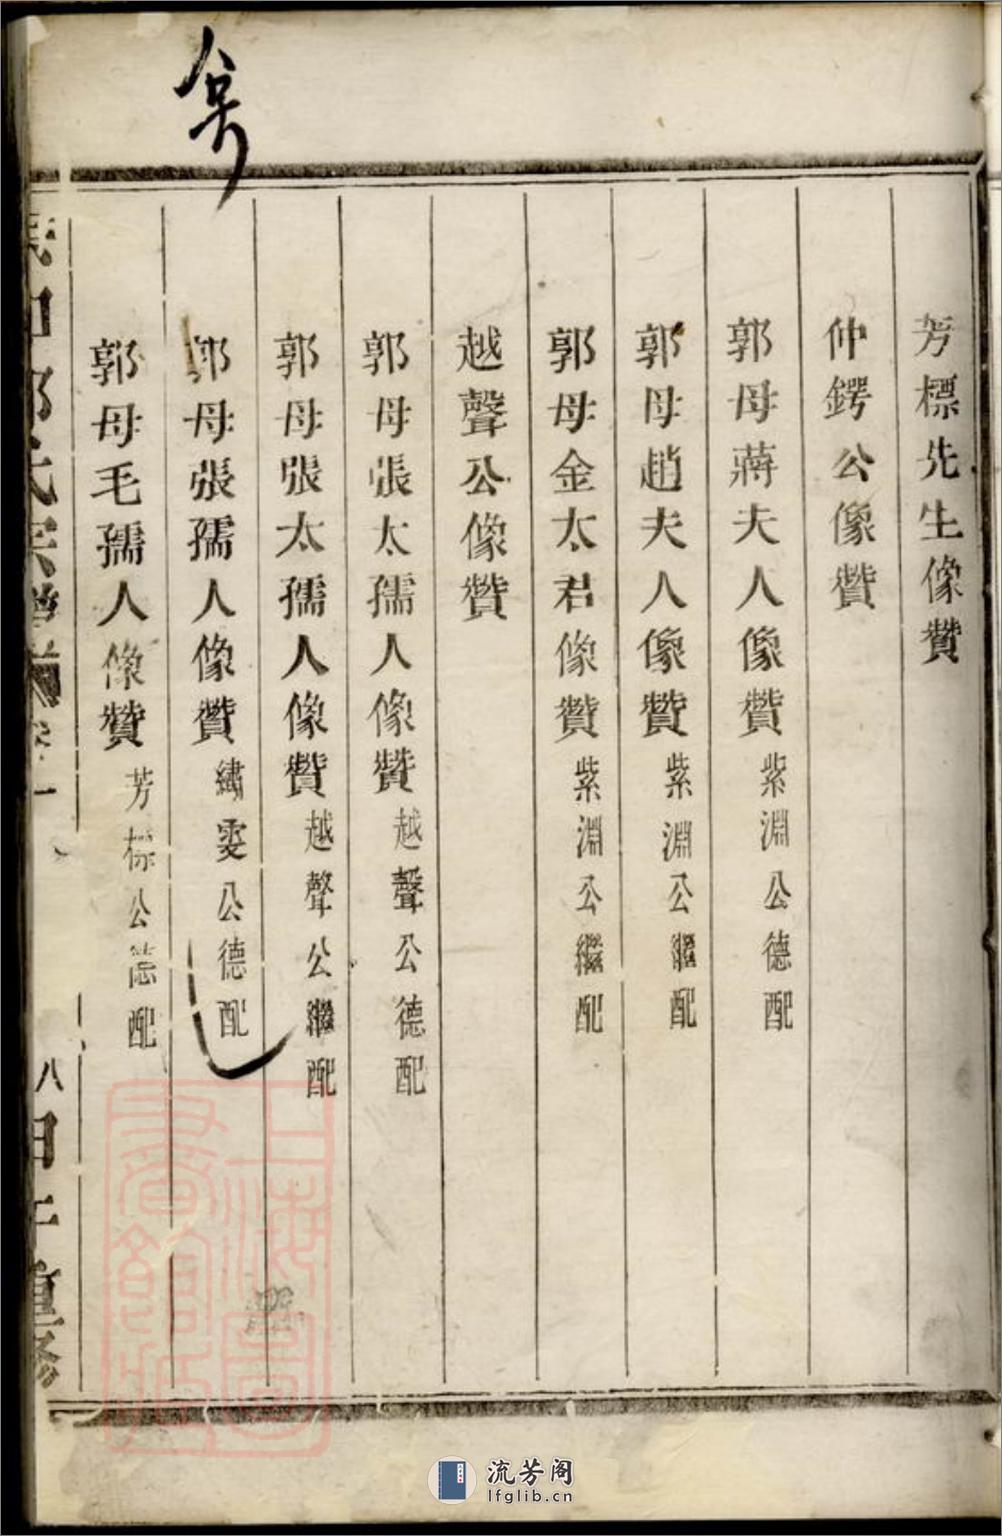 芳標先生像贊
仲鍔公像贊
郭母蔣夫人像贊 紫淵公德配
郭母趙夫人像贊 紫淵公繼配
郭母金太君像贊 紫淵公繼配
越聲公像贊
郭母張太孺人像贊 越聲公德配
郭母張太孺人像贊 越聲公繼配
郭母張孺人像贊 繡雯公德配
郭母毛孺人像贊 芳標公德配
八
重修
上海圖書館藏
流芳阁
lfglib.cn